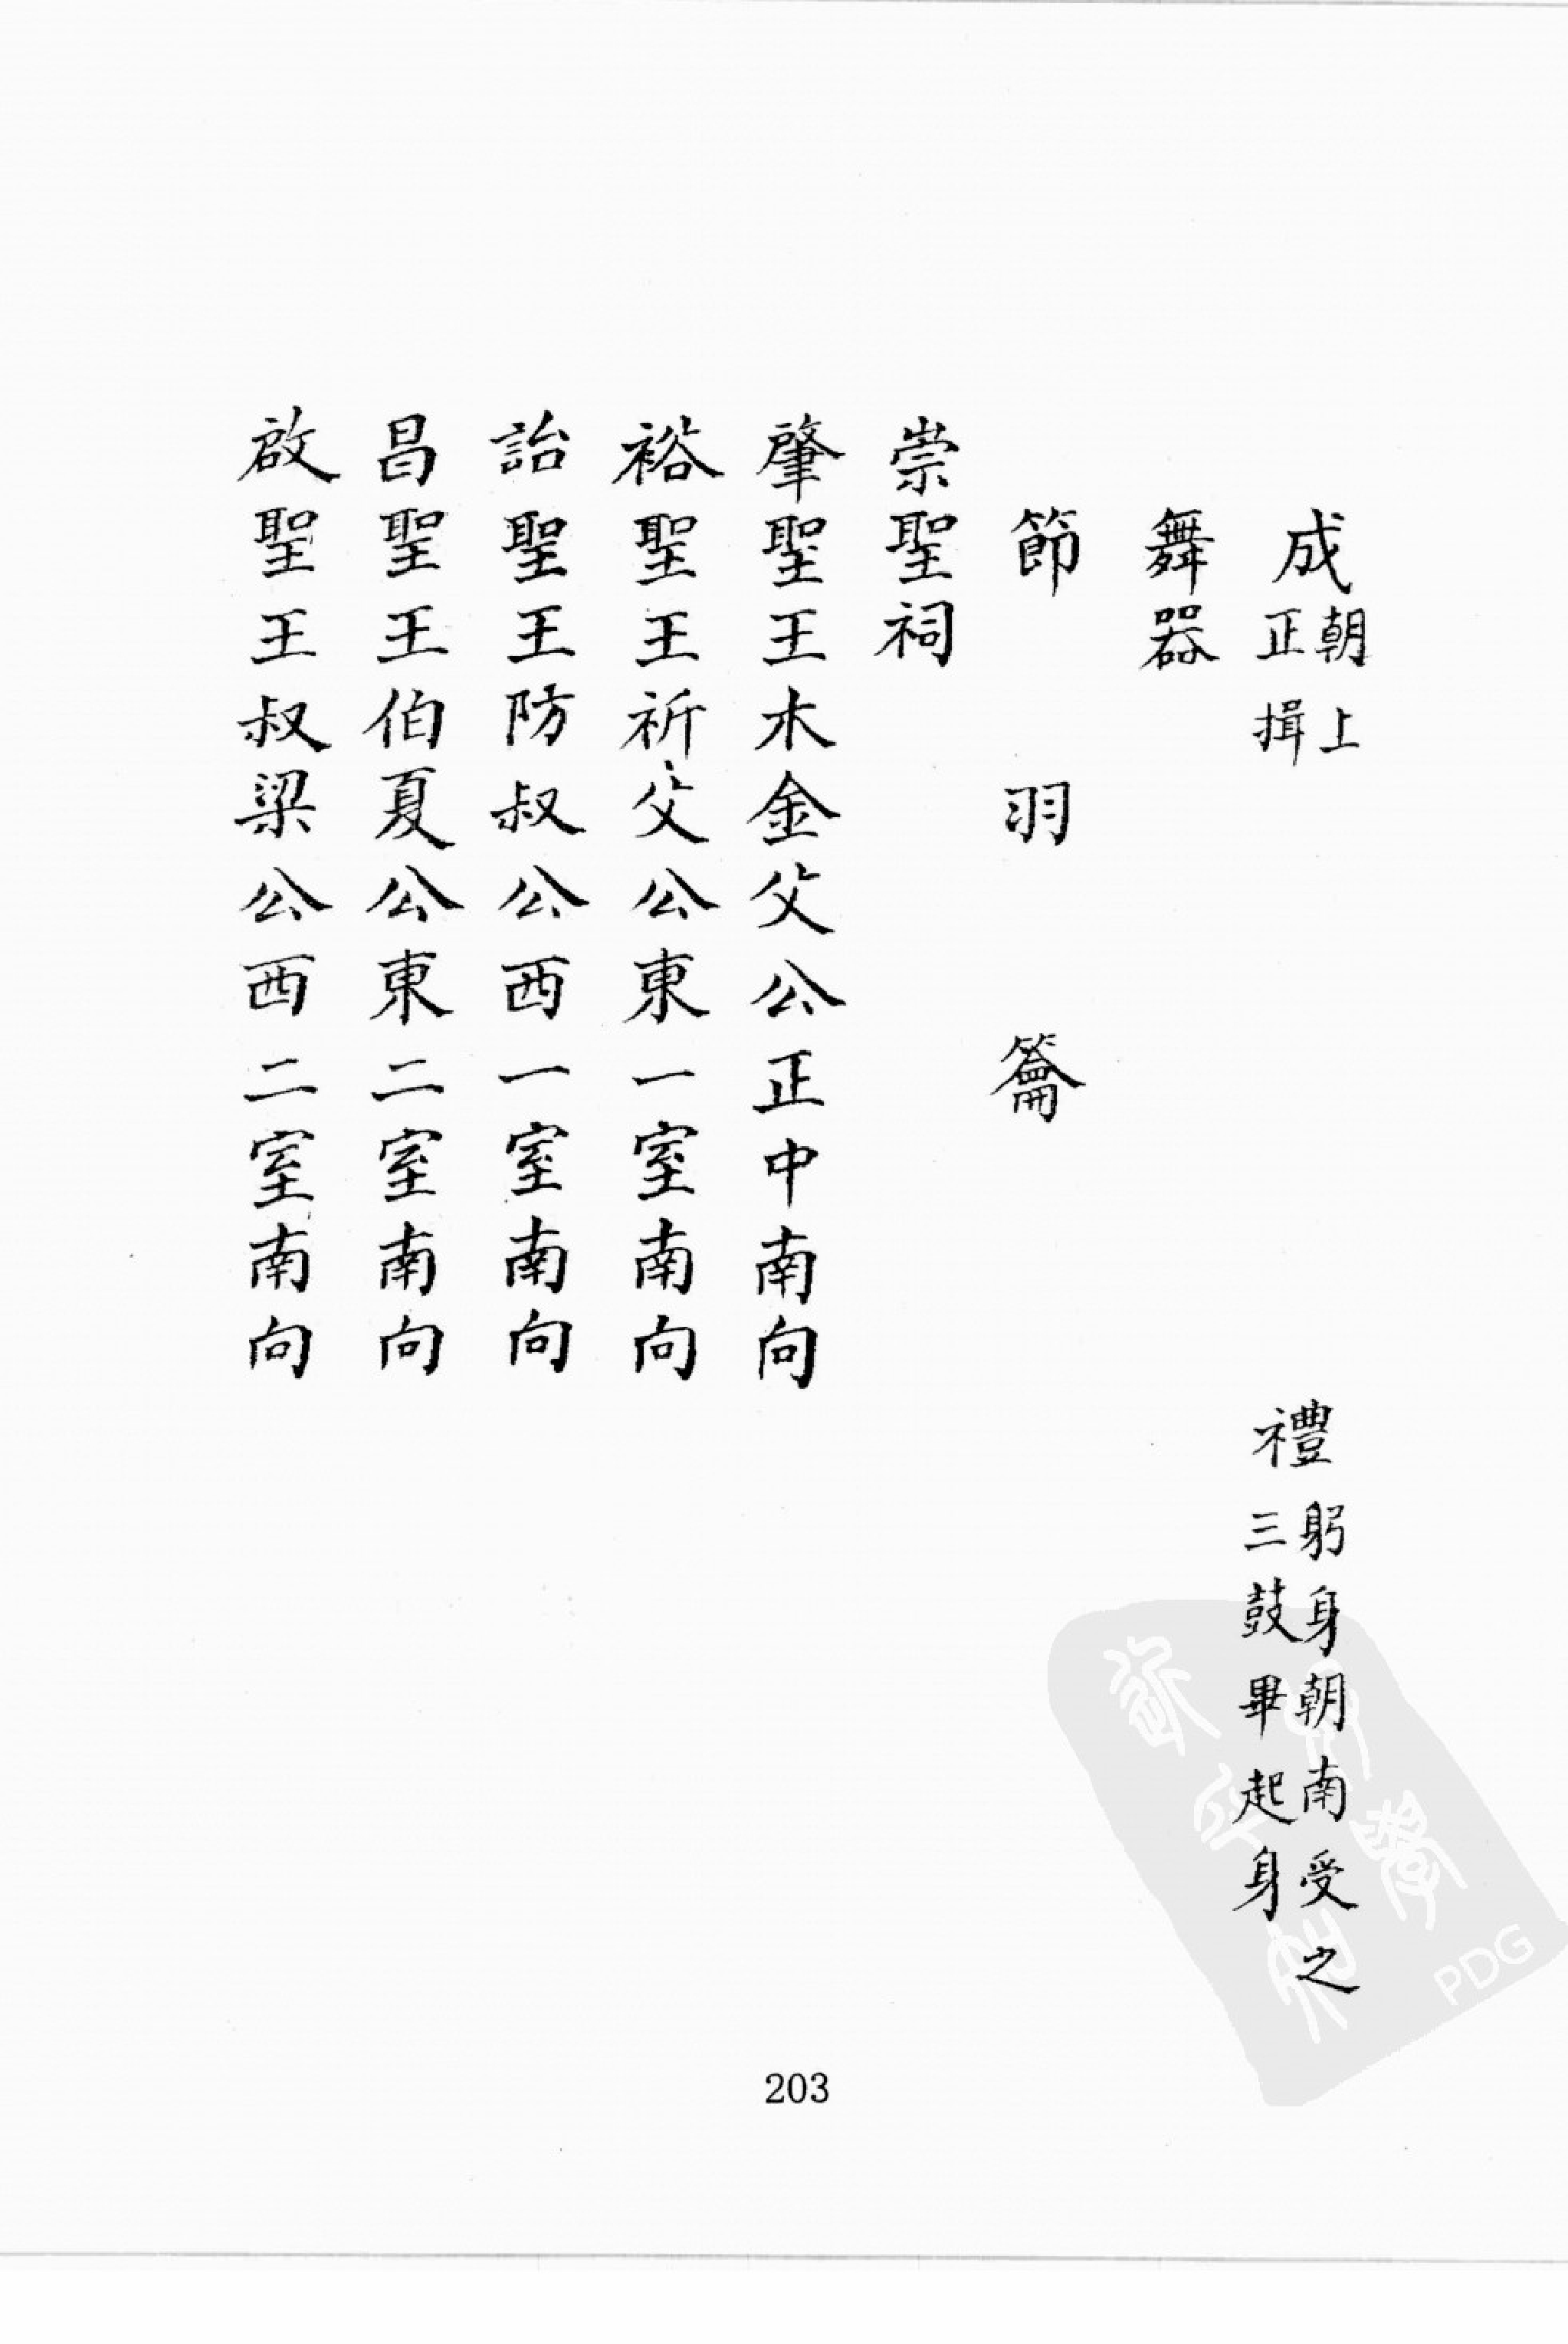 成朝上正揖 禮躬身朝南受之三鼓畢起身
舞器
節 羽 籥
崇聖祠
肇聖王木金父公正中南向
裕聖王祈父公東一室南向
詒聖王防叔公西一室南向
昌聖王伯夏公東二室南向
啟聖王叔梁公西二室南向
203
PDG